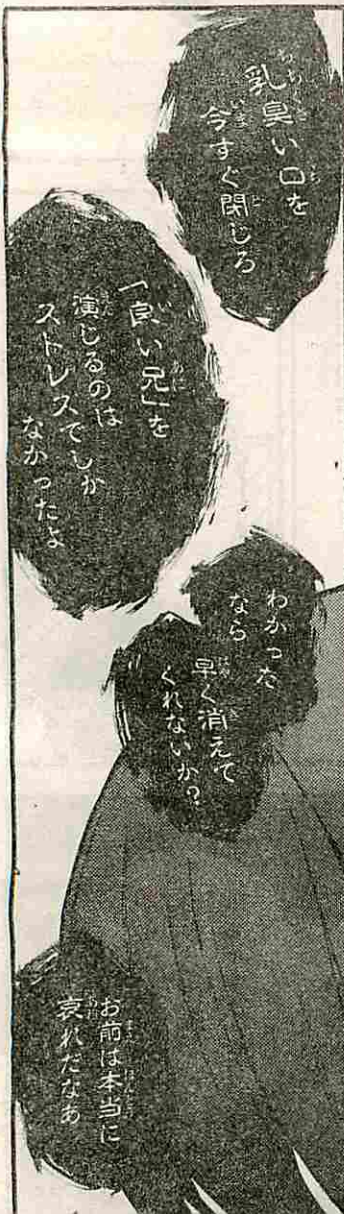 乳臭い口を
今すぐ閉じろ
「良い兄」を
演じるのは
ストレスでしか
なかったよ
わかった
なら
早く消えて
くれないか?
お前は本当に
哀れだなあ